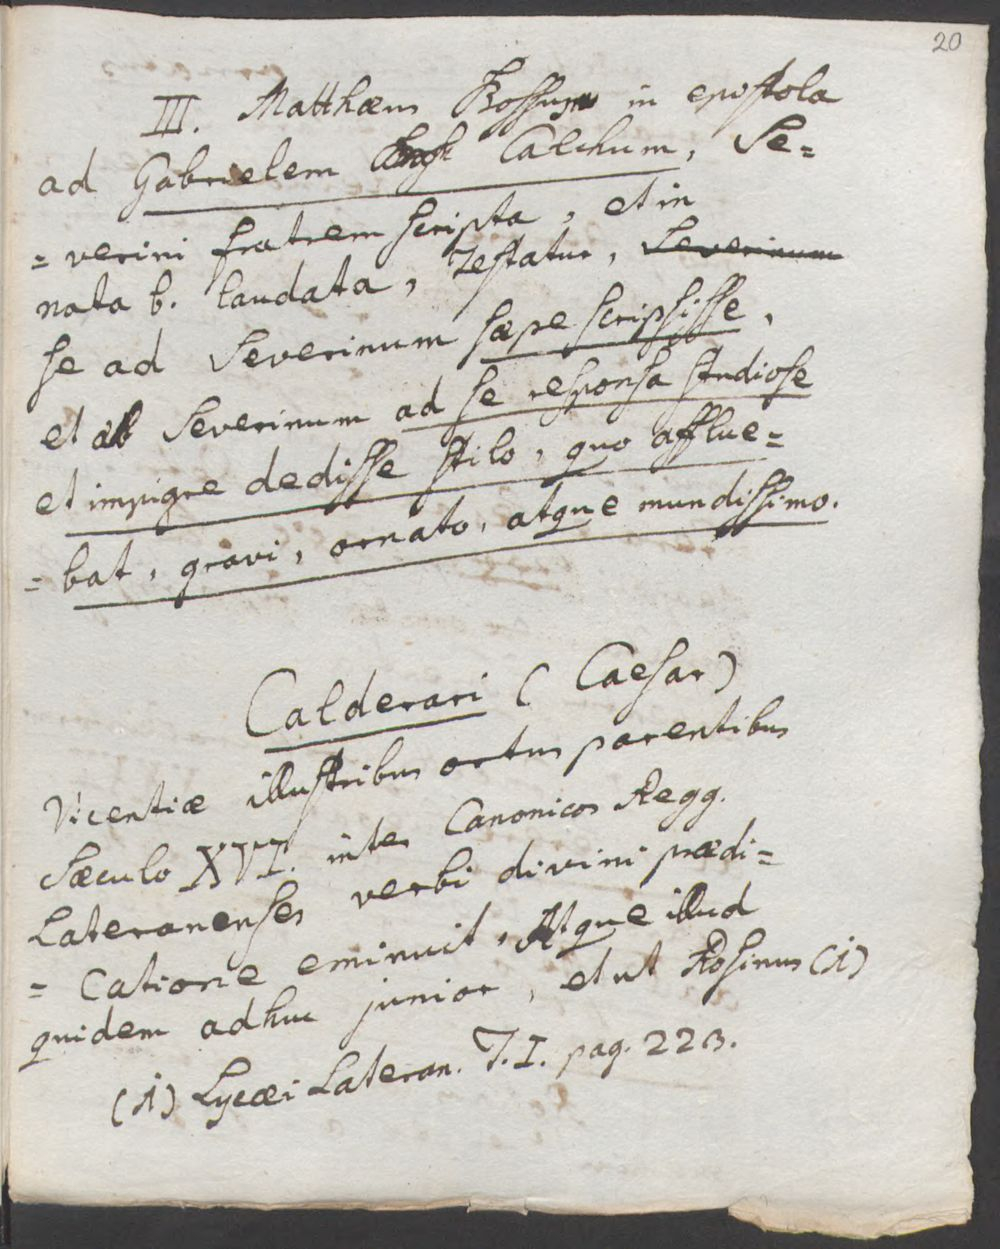 20
III. Matthæus Bossus in epistola
ad Gabrielem Calchum, Se=
= verini fratrem scripta, et in
nota b. laudata, testatur, Severinum
se ad Severinum sæpe scripsisse,
et ab Severinum ad se responsa studiose
et impigre dedisse stilo, quo afflue=
= bat, gravi, ornato, atque mundissimo.
Calderari (Caesar)
Vicentiæ illustribus ortus parentibus
Sæculo XVI. inter Canonicos Regg.
Lateranenses verbi divini prædi=
= catione eminuit, Atque illud
quidem adhuc junior, et ut Rosinus (A)
(A) Lycæi Lateran. T. I. pag. 223.